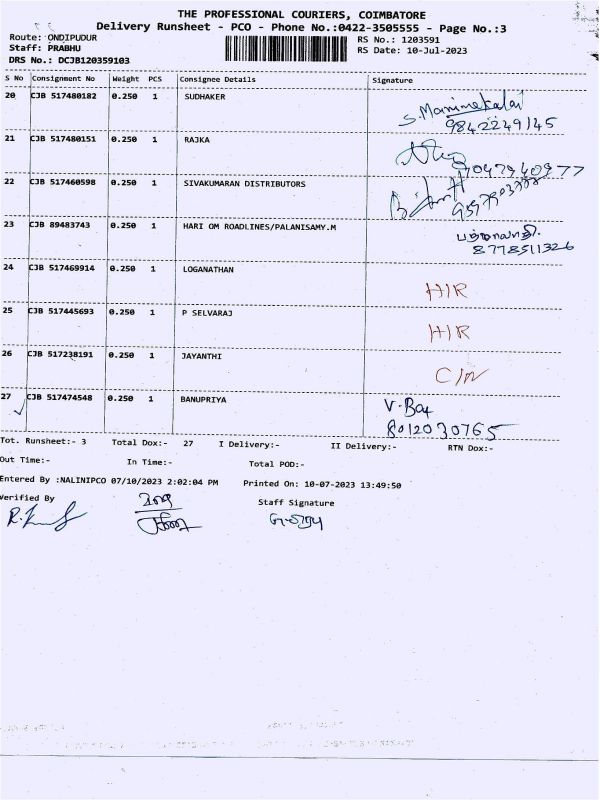 THE PROFESSIONAL COURIERS, COIMBATORE
Delivery Runsheet - PCO - Phone No.:0422-3505555 - Page No.:3
Route: ONDIPUDUR RS No.: 1203591
Staff: PRABHU RS Date: 10-Jul-2023
DRS No.: DCJB120359103
S No Consignment No Weight PCS Consignee Details Signature
20 CJB 517480182 0.250 1 SUDHAKER S. Manimekalai
9842249145
21 CJB 517480151 0.250 1 RAJKA
22 CJB 517460598 0.250 1 SIVAKUMARAN DISTRIBUTORS
23 CJB 89483743 0.250 1 HARI OM ROADLINES/PALANISAMY.M
8778511326
24 CJB 517469914 0.250 1 LOGANATHAN H/R
25 CJB 517445693 0.250 1 P SELVARAJ H/R
26 CJB 517238191 0.250 1 JAYANTHI
27 CJB 517474548 0.250 1 BANUPRIYA
8012030765
Tot. Runsheet:- 3 Total Dox:- 27 I Delivery:- II Delivery:- RTN Dox:-
Out Time:- In Time:- Total POD:-
Entered By :NALINIPCO 07/10/2023 2:02:04 PM Printed On: 10-07-2023 13:49:50
Verified By Staff Signature